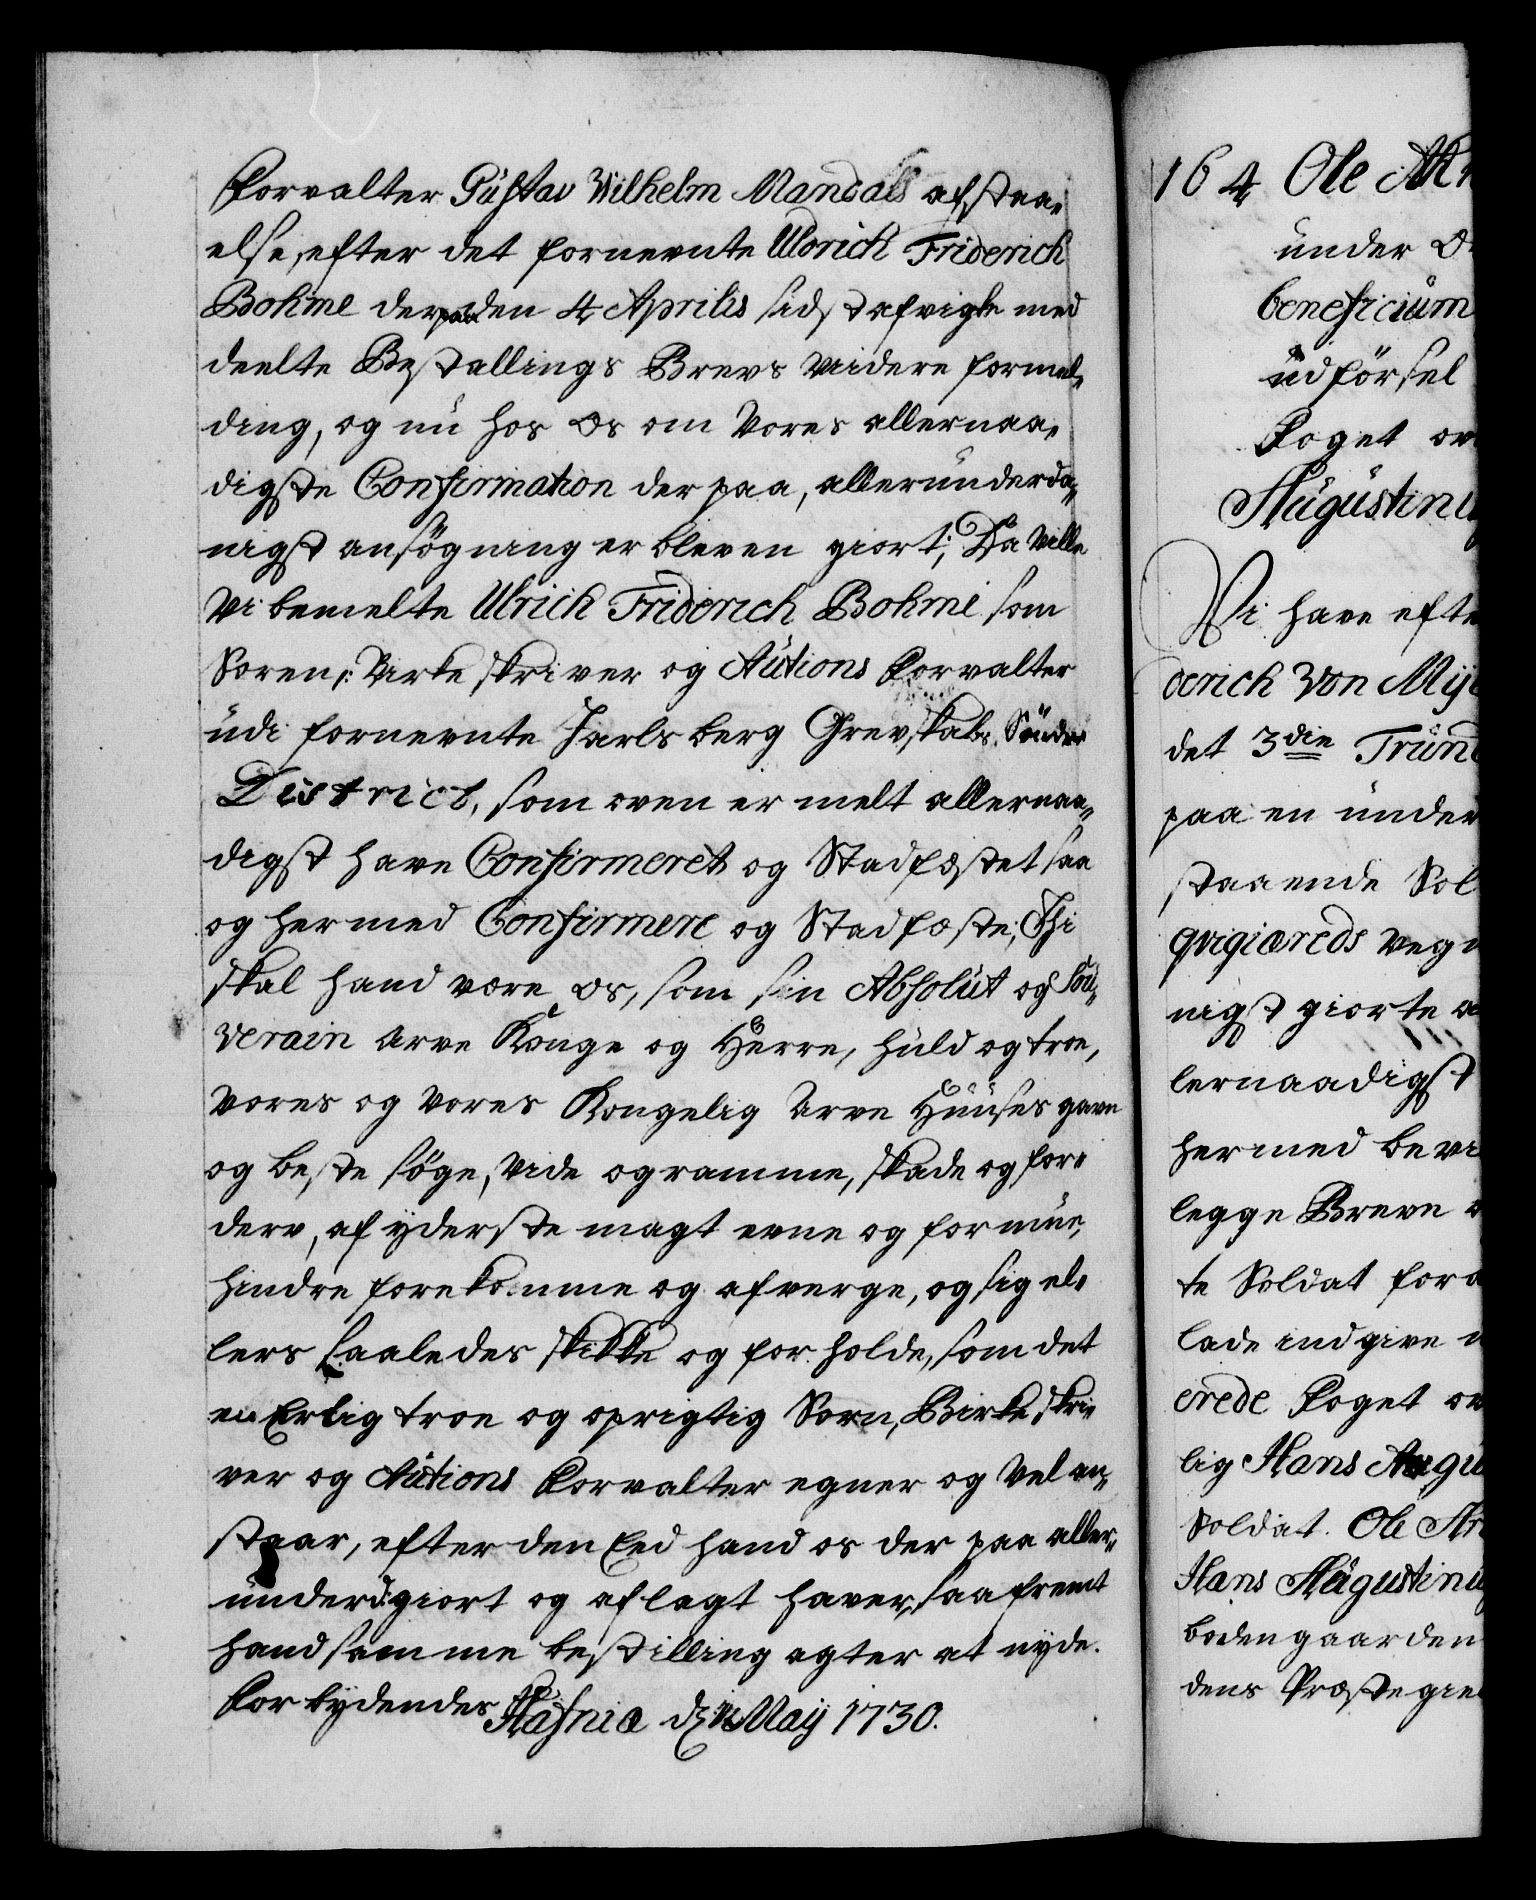 Forvalter Gustav Wilhelm Mandals afstaa,
else, efter det fornevnte Uldrich Friderich
Bohme derpaa den 4 Aprilis sidst afvigte med
deelte Bestallings Brevs viidere formel,
ding, og nu hos Os om Vores allernaa,
digste Confirmation der paa, allerunderda,
nigst ansøgning er bleven giort; Da Ville
Vi bemelte Ulrich Friderich Bohme som
Soren,: Birke skriver og Autions Forvalter
udi fornevnte Jarlsberg Grevskabs Sønder
District, som oven er melt allernaa,
digst have Confirmeret og Stadfæstet saa
og hermed Confirmere og Stadfæste; Thi
skal hand være os, som sin Absolut og Sou,
verain Arve Konge og Herre, huld og troe,
Vores og Vores Kongelig Arve Huuses gavn
og beste søge, Vide og ramme, skade og for,
derv, af yderste magt evne og formue,
hindre forekomme og afverge, og sig el,
lers saaledes skikke og forholde, som det
en Erlig troe og oprigtig Sorn, Birke, skri,
ver og Autions Forvalter egner og Vel an,
staar, efter den Eed hand os der paa aller,
underd: giort og aflagt haver, saafremt
hand samme bestilling agter at nyde.
Forbydendes Hafniæ d: Maij 1730.
164 Ole
under
beneficium
udførsel
Foget
Augustinu
Vi have efte
derich Von
det 3die
paa en under
staaende Sol
qvigiæreds Vegn
nigst giorte
lernaadigst
hermed bevi
legge Breve
te Soldat for
lade indgive
erede Foget
lig Hans Augu
Soldat. Ole
Hans Augustinu
boden gaarden
dens Præstegie